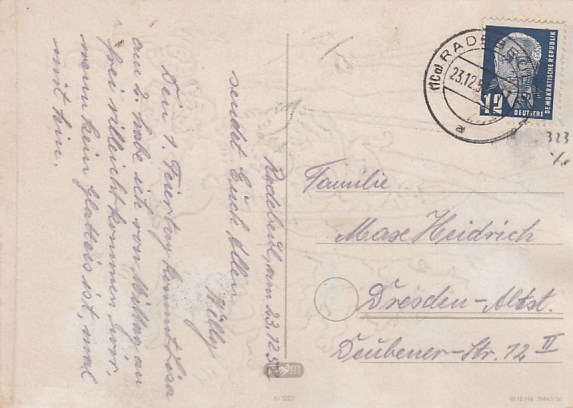 Radebeul, am 23.12.5
sendet Euch Allen
Willy
Den 1. Feiertag kommt Lisa
am 2. habe ich von Mittag an
frei vielleicht kommen wir,
wenn kein Glatteis ist, mal
mit hin.
(10a) RADEBEUL
23.12.5
a
12
DEUTSCHE
DEMOKRATISCHE REPUBLIK
323
Familie
Max Heidrich
Dresden-Altst.
Deubener-Str. 12 II